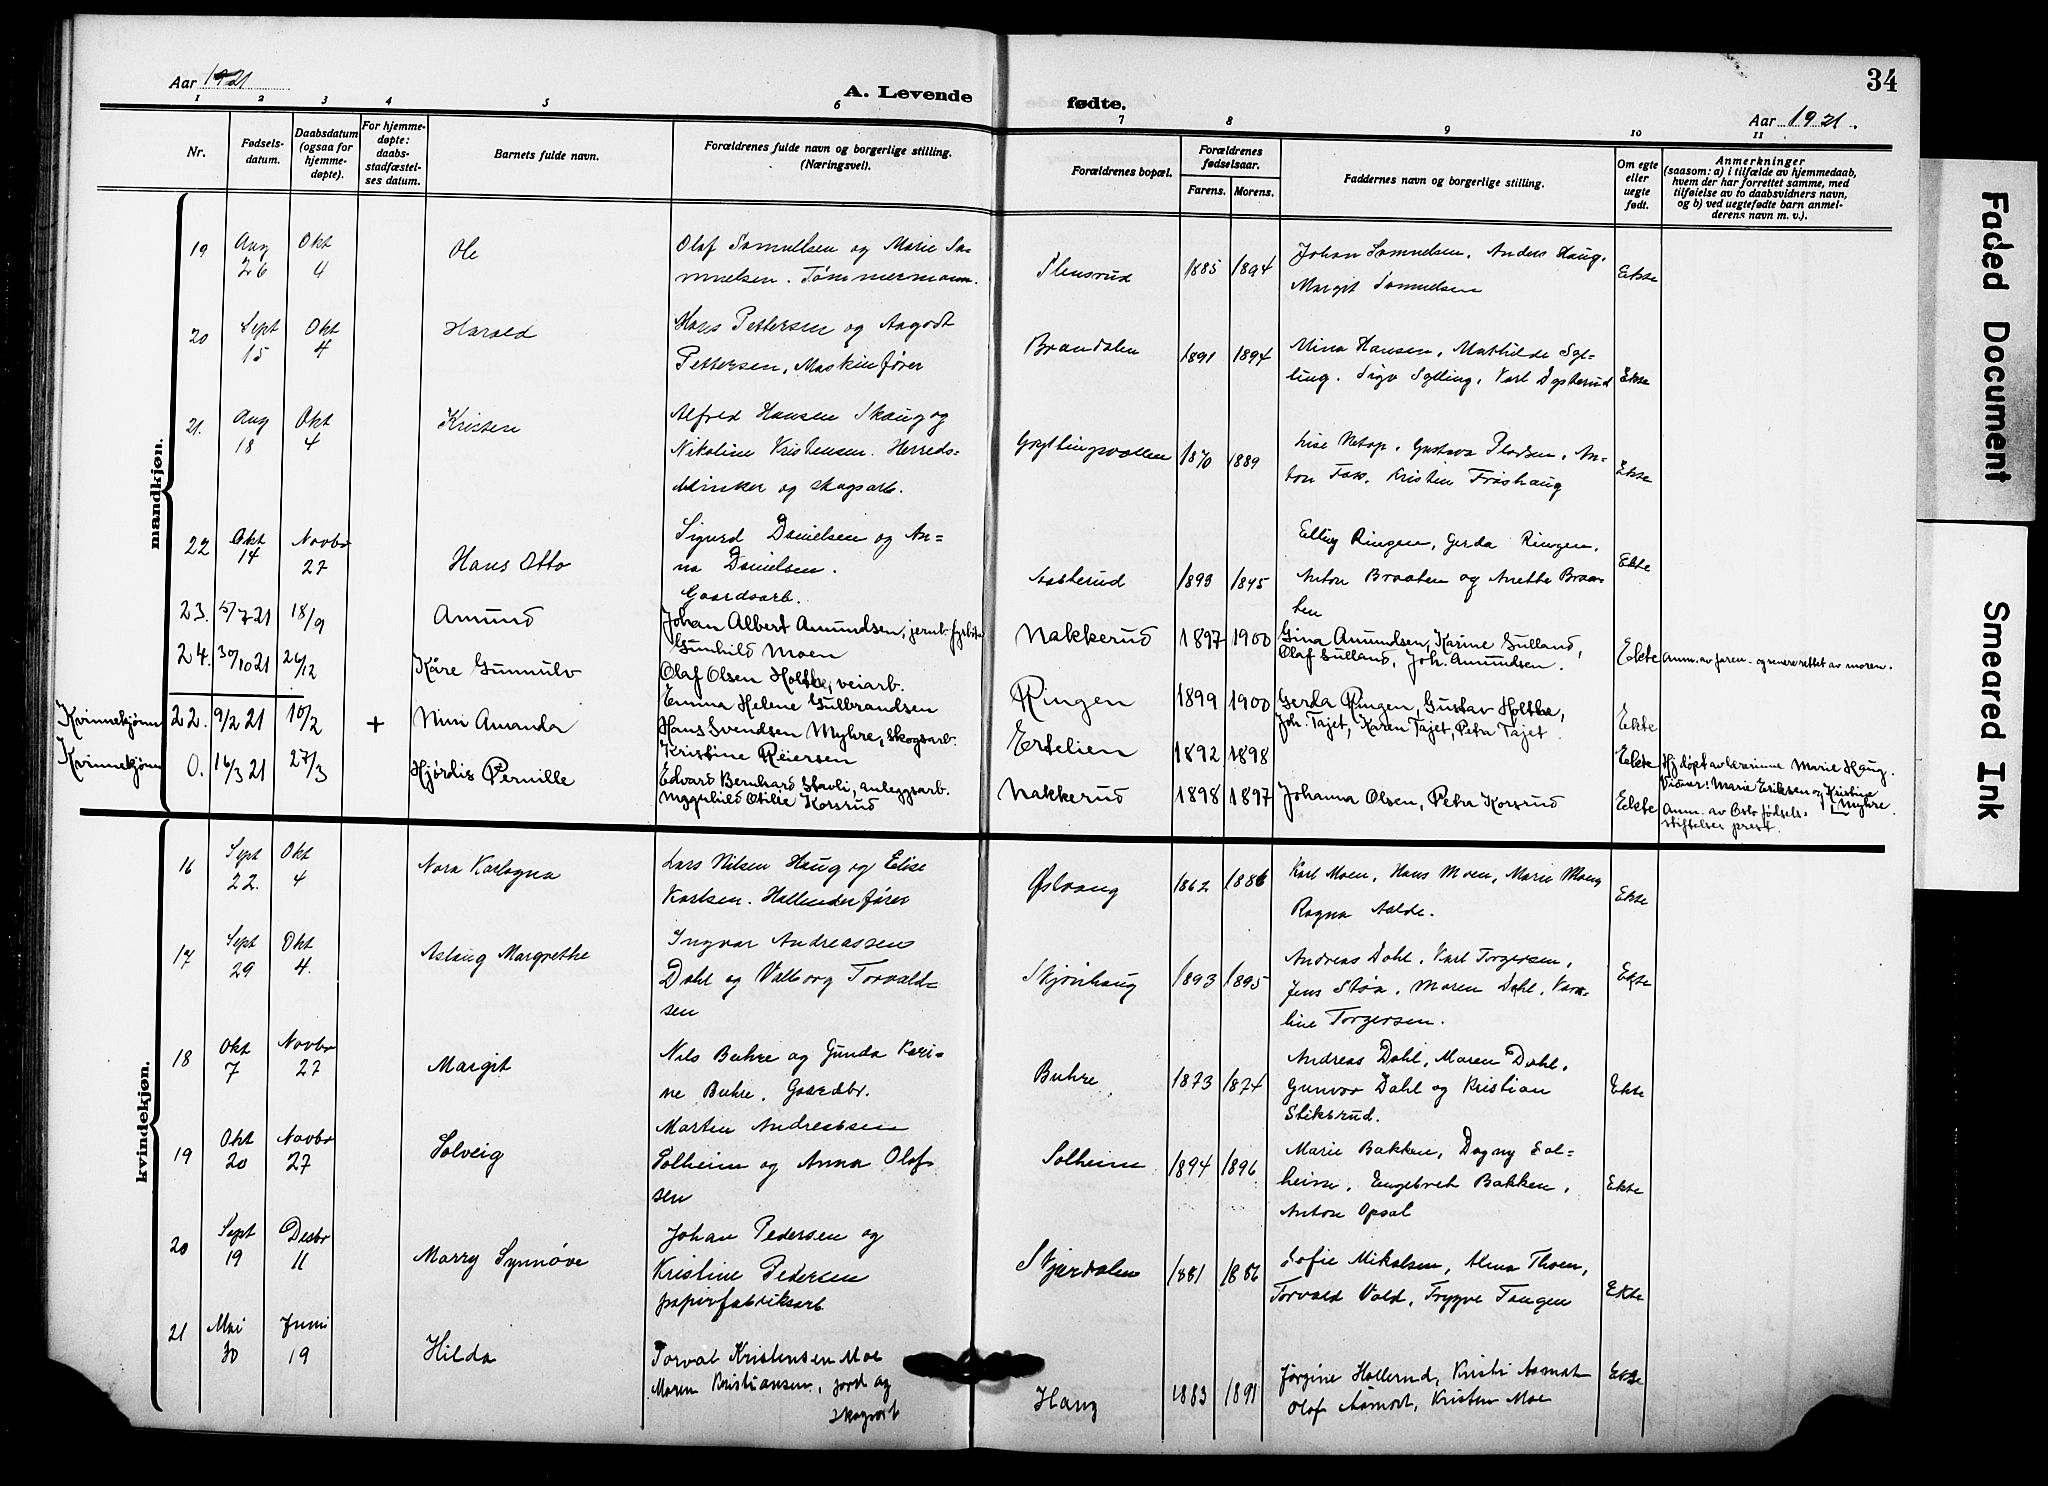 34
Aar 1921
A. Levende fødte.
Aar 1921.
1 2 3 4 5 6 7 8 9 10 11
Nr.
Fødsels-
datum.
Daabsdatum
(ogsaa for
hjemme-
døpte).
For hjemme-
døpte:
daabs-
stadfæstel-
ses datum.
Barnets fulde navn.
Forældrenes fulde navn og borgerlige stilling.
(Næringsvei).
Forældrenes bopæl.
Forældrenes
fødselsaar.
Farens. Morens.
Faddernes navn og borgerlige stilling.
Om egte
eller
uegte
født.
Anmerkninger
(saasom: a) i tilfælde av hjemmedaab,
hvem der har forrettet samme, med
tilføielse av to daabsvidners navn,
og b) ved uegtefødte barn anmel-
derens navn m. v.).
mandkjøn.
19 Aug 26 Okt 4 Ole
Olaf Samuelsen og Marie Sa-
muelsen. Tømmermann.
Plensrud 1885 1894
Johan Samuelsen, Anders Haug,
Margit Samuelsen
Ekte
20 Sept 15 Okt 4 Harald
Hans Pettersen og Aagodt
Pettersen, Maskinfører
Brandalen 1891 1894
Mina Hansen, Mathilde Syl-
ling. Sigv Sylling, Karl Dysterud
Ekte
21. Aug 18 Okt 4 Kristen
Alfred Hansen Skaug og
Nikoline Kristensen. Herreds-
minker og skogsarb.
1870 1889
Lise Netop, Gustava Pladsen, An-
ton Fak, Kristin Frøshaug
Ekte
22 Okt 14 Novbr 27 Hans Otto
Sigurd Danielsen og An-
na Danielsen.
Gaardsarb.
Aasterud 1893 1895
Elling Ringen, Gerda Ringen,
Anton Braaten og Anette Braa-
ten
Ekte
23. 5/7 21 18/9 Amund
Johan Albert Amundsen, jernb.fyrbøter
Gunhild Moen
Nakkerud 1897 1900
Gina Amundsen, Karine Sulland,
Olaf Sulland, Joh. Amundsen.
Ekte Anm. av faren - og senere rettet av moren.
24. 30/10 21 26/12 Kåre Gunnulv
Olaf Olsen Holtbe, veiarb.
Emma Helene Gulbrandsen
Ringen 1899 1900
Gerda Ringen, Gustav Holtbe,
Joh. Tajet, Karen Tajet, Petra Tajet.
Ekte
Kvinnekjønn 22. 9/2 21 10/2 + Nini Amanda
Hans Svendsen Myhre, skogsarb.
Kristine Reiersen
Ertelien 1892 1898
Ekte Hj.døpt av lærerinne Marie Haug.
Vidner: Marie Eriksen og Kristine
Myhre.
Kvinnekjønn 0. 16/3 21 27/3 Hjørdis Pernille
Edvard Bernhard Stavli, anleggsarb.
Ingguhild Otilie Korsrud
Nakkerud 1898 1897
Johanna Olsen, Petra Korsrud
Ekte Anm. av Oslo fødsels-
stiftelses prest.
kvindekjøn.
16 Sept 22. Okt 4 Nora Karlagna
Lars Nilsen Haug og Elise
Karlsen. Hollenderfører
Østvang 1862 1886
Karl Moen, Hans Moen, Marie Moen,
Ragna Aalde.
Ekte
17 Sept 29 Okt 4. Aslaug Margrethe
Ingvar Andreassen
Dahl og Valborg Torvald-
sen
Skjønhaug 1893 1895
Andreas Dahl, Karl Torgersen,
Jens Støa, Maren Dahl, Karo-
line Torgersen.
Ekte
18 Okt 7 Novbr 27 Margit
Nils Buhre og Gunda Kari-
ne Buhre, Gaardbr.
Buhre 1873 1874
Andreas Dahl, Maren Dahl,
Gunvor Dahl og Kristian
Stiksrud.
Ekte
19 Okt 20 Novbr 27 Solveig
Martin Andreassen
Solheim og Anna Olaf-
sen
Solheim 1894 1896
Marie Bakken, Dagny Sol-
heim, Engebret Bakken,
Anton Opsal
Ekte
20 Sept 19 Desbr 11 Marry Synnøve
Johan Pedersen og
Kristine Pedersen
papirfabriksarb
Skjærdalen 1881 1886
Sofie Mikalsen, Alma Thoen,
Torvald Vold, Trygve Tangen
Ekte
21 Mai 30 Juni 19 Hilda
Torval Kristensen Moe
Maren Kristiansen, jord og
skogarb
Haug 1883 1891
Jørgine Hollerud, Kristi Aamot
Olaf Aamodt, Kristen Moe
Ekte
Faded Document
Smeared Ink